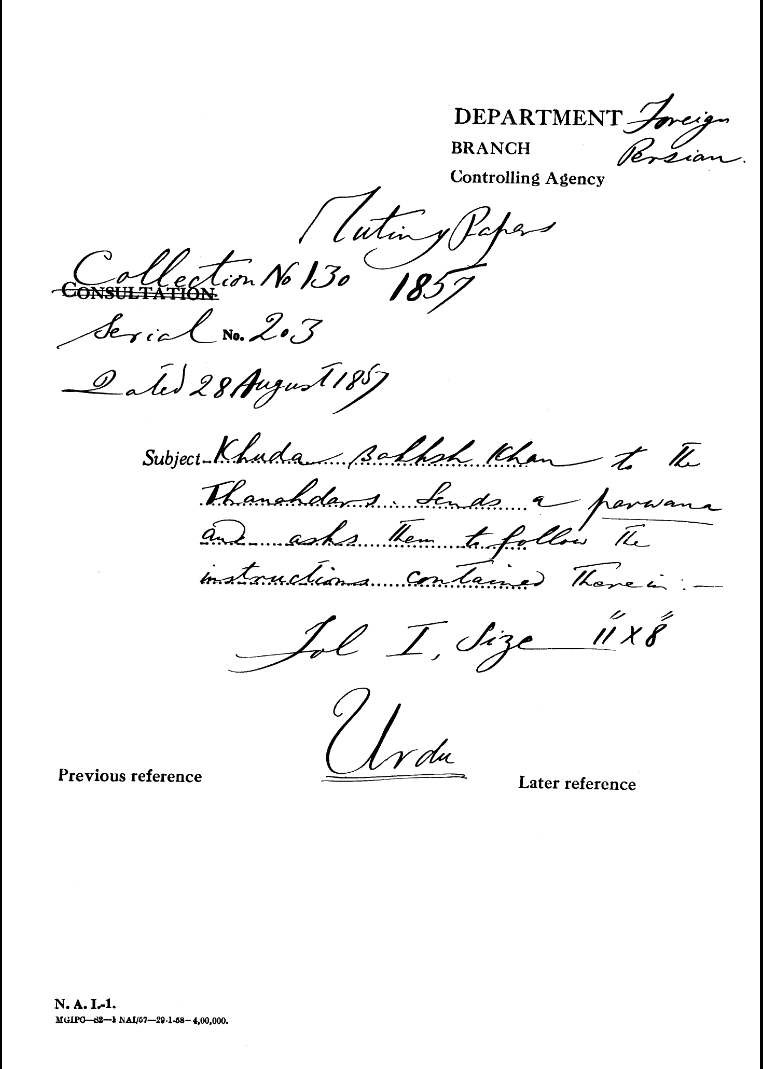 DEPARTMENT Foreign
BRANCH Persian.
Controlling Agency
Mutiny Papers
Collection No 130 1857
CONSULTATION
Serial No. 203
Dated 28 August 1857
Subject Khuda Bakhsh Khan to the
Thanahdars. Sends a parwana
and asks them to follow the
instructions contained therein :—
Fol I, Size 11" X 8"
Urdu
Previous reference
Later reference
N. A. I.-1.
MGIPC—S2—1 NAI/57—29-1-58—4,00,000.